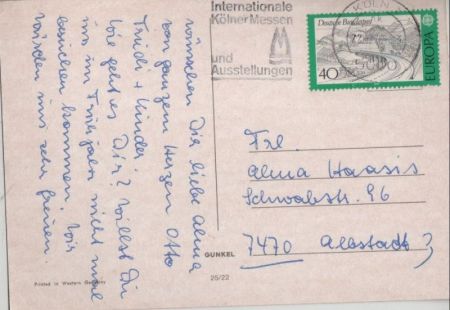 Internationale
Kölner Messen
und
Ausstellungen
KÖLN
Deutsche Bundespost
40
EUROPA
wünschen Dir liebe Alma
von ganzem Herzen Otto
Trudi + Kinder.
Wie geht es Dir? Willst Du
uns im Frühjahr nicht mal
besuchen kommen. Wir
würden uns sehr freuen.
Frl.
Alma Haasis
Schwabstr. 96
7470 Albstadt 3
GUNKEL
Printed in Western Germany
25/22